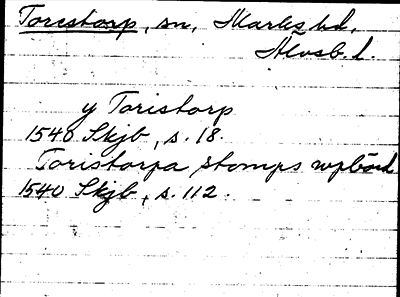 Torestorp, sn, Marks hd,
Älvsb. l.
y Toristorp
1540 Skjb, s. 18.
Toristorpa stomps upbörd
1540 Skjb, s. 112.